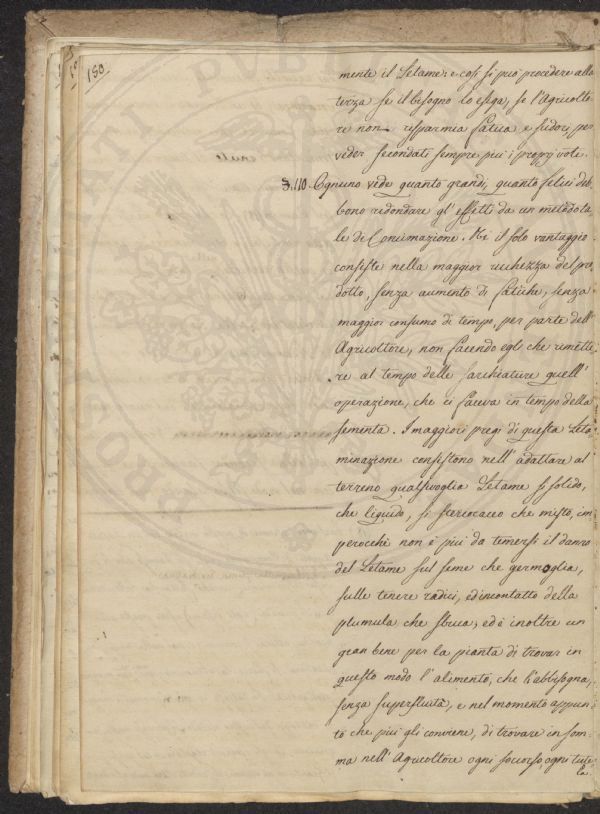 150
mente il Letame: e così si può procedere alla
terza se il bisogno lo esiga, se l'Agricolto
re non risparmia fatica e sudori, per
veder secondati sempre più i proprj voti.
§. 110. Ognuno vede quanto grandi, quanto felici deb
bono ridondare gl'effetti da un metodo ta
le di Concimazione. Nè il solo vantaggio
consiste nella maggior ricchezza del pro
dotto, senza aumento di fatiche, senza
maggior consumo di tempo, per parte dell'
Agricoltore, non facendo egli che rimette
re al tempo delle sarchiature quell'
operazione, che ei faceva in tempo della
sementa. I maggiori pregi di questa Leta
minazione consistono nell'adattare al
terreno qualsivoglia Letame sì solido,
che liquido, sì stercoraceo che misto, im
perocchè non è più da temersi il danno
del Letame sul seme che germoglia,
sulle tenere radici, ed in contatto della
plumula che sbuca; ed è inoltre un
gran bene per la pianta di trovar in
questo modo l'alimento, che l'abbisogna,
senza superfluità, e nel momento appun
to che più gli conviene, di trovare in som
ma nell'Agricoltore ogni soccorso, ogni tute
la